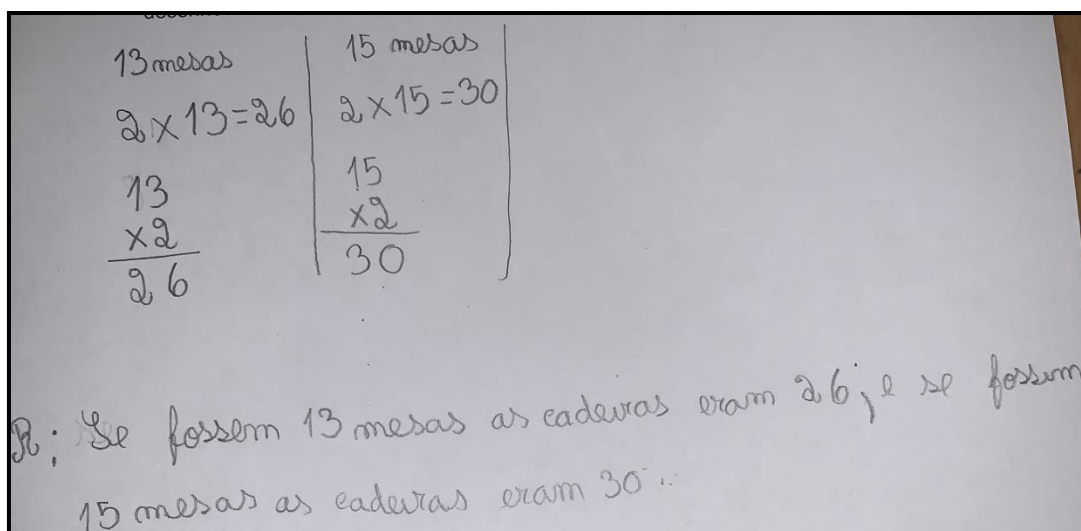 13 mesas
2 x 13 = 26
13
x2
26
15 mesas
2 x 15 = 30
15
x2
30
R: Se fossem 13 mesas as cadeiras eram 26, e se fossem
15 mesas as cadeiras eram 30.